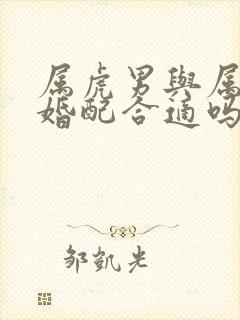 属虎男與属
婚配合適吗
邹凱光